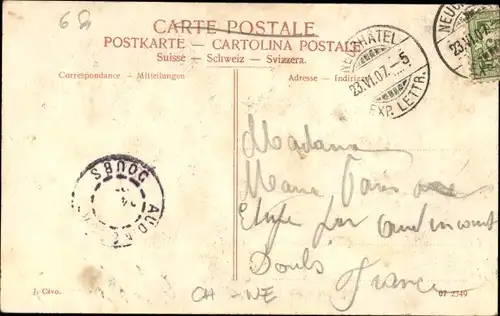 6
CARTE POSTALE
POSTKARTE — CARTOLINA POSTALE
Suisse — Schweiz — Svizzera.
Correspondance — Mitteilungen
Adresse — Indirizzo
NEUCHATEL
23.VI.07.–5
EXP. LETTR.
23.VI.07
DOUBS
24
Madame
Marie
par Audincourt
Doubs
France
J. Cavo.
CH - NE
07 2349